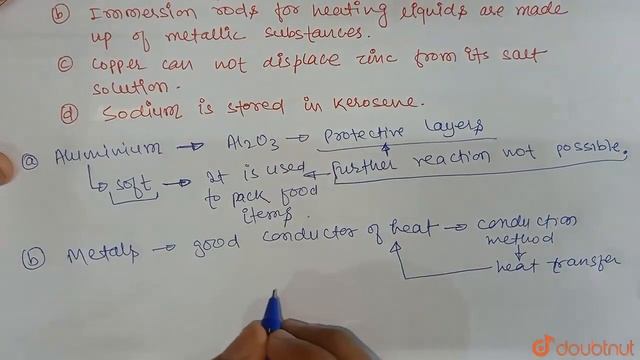 (b) Immersion rods for heating liquids are made
up of metallic substances.
(c) Copper can not displace zinc from its salt
solution.
(d) Sodium is stored in kerosene.
(a) Aluminium → Al2O3 → protective layers
soft → It is used further reaction not possible.
to pack food
items.
(b) Metals → good conductor of heat → conduction
method
heat transfer
doubtnut